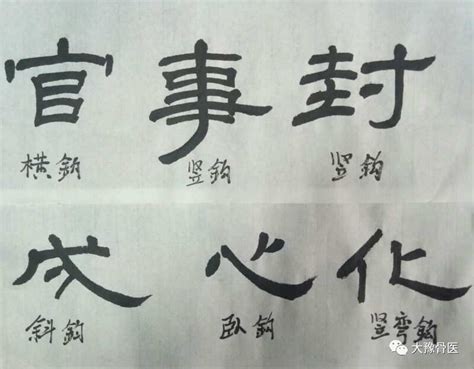 官 事 封
横鈎 竖鈎 竖鈎
成 心 化
斜鈎 臥鈎 竖弯鈎
大豫骨医